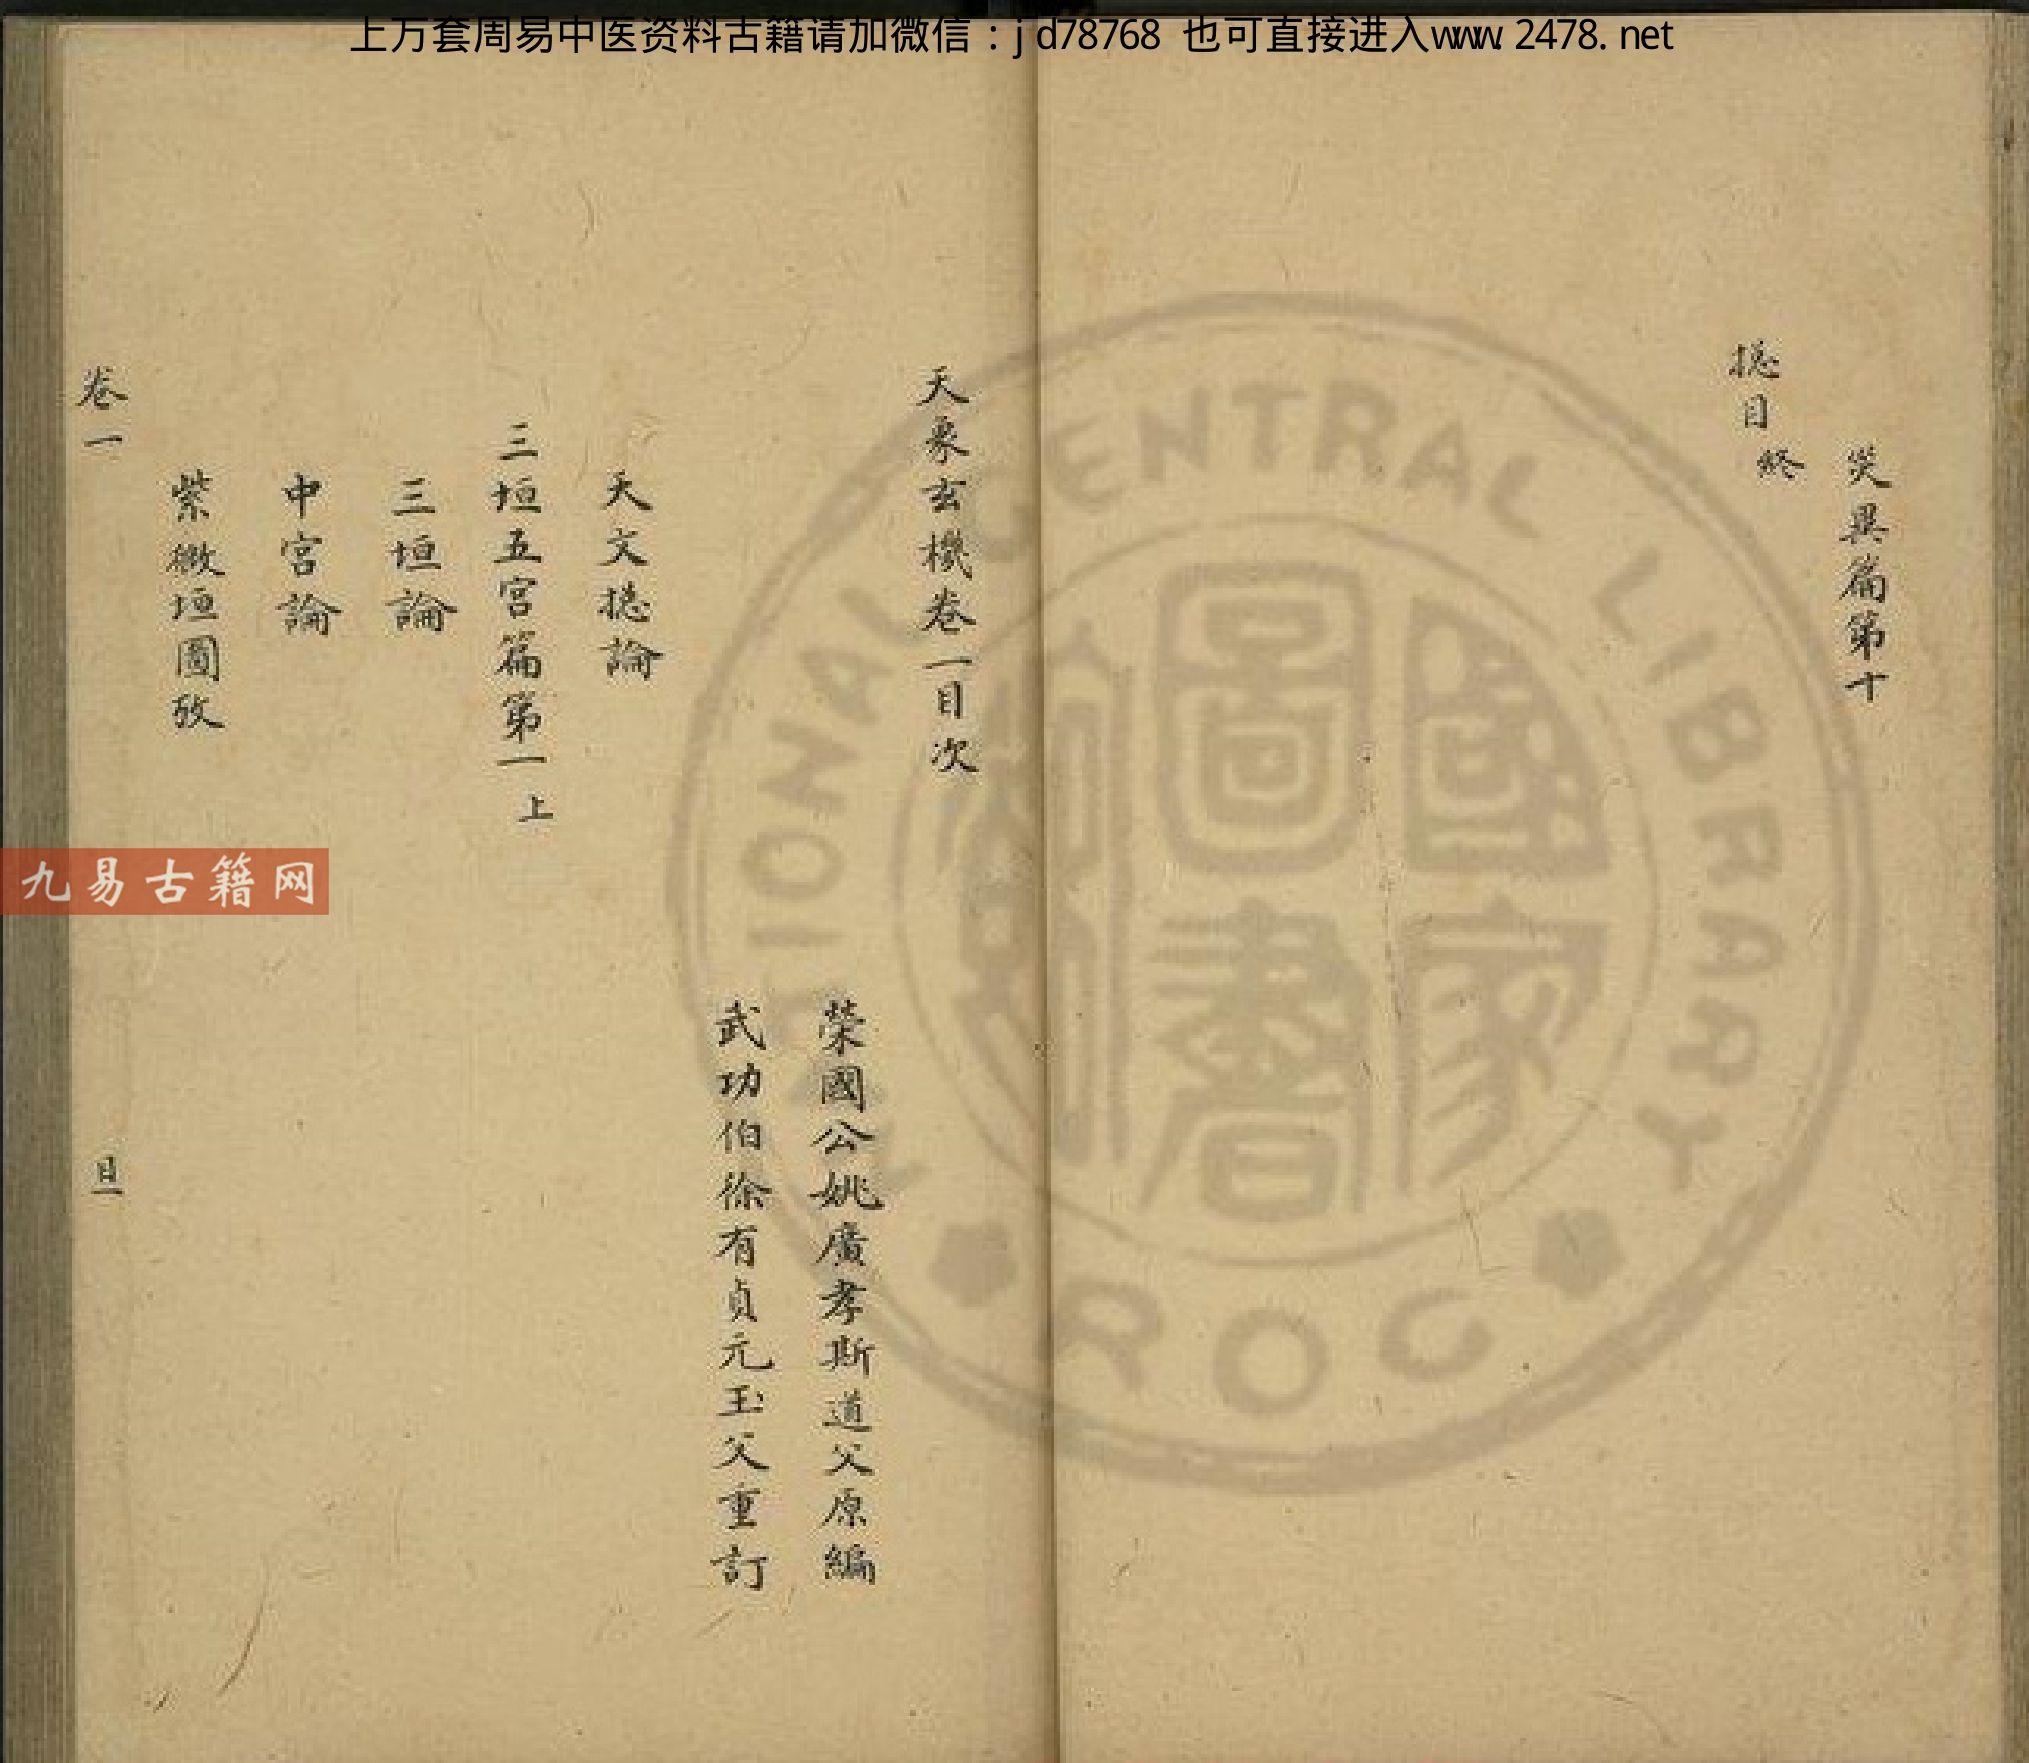 上万套周易中医资料古籍请加微信：jd78768 也可直接进入www.2478.net
災異篇第十
揔目終
天象玄機卷一目次
榮國公姚廣孝斯道父原編
武功伯徐有貞元玉父重訂
天文揔論
三垣五宮篇第一上
三垣論
中宮論
紫微垣圖攷
卷一
目一
九易古籍网
NATIONAL CENTRAL LIBRARY
國家圖書館
ROC